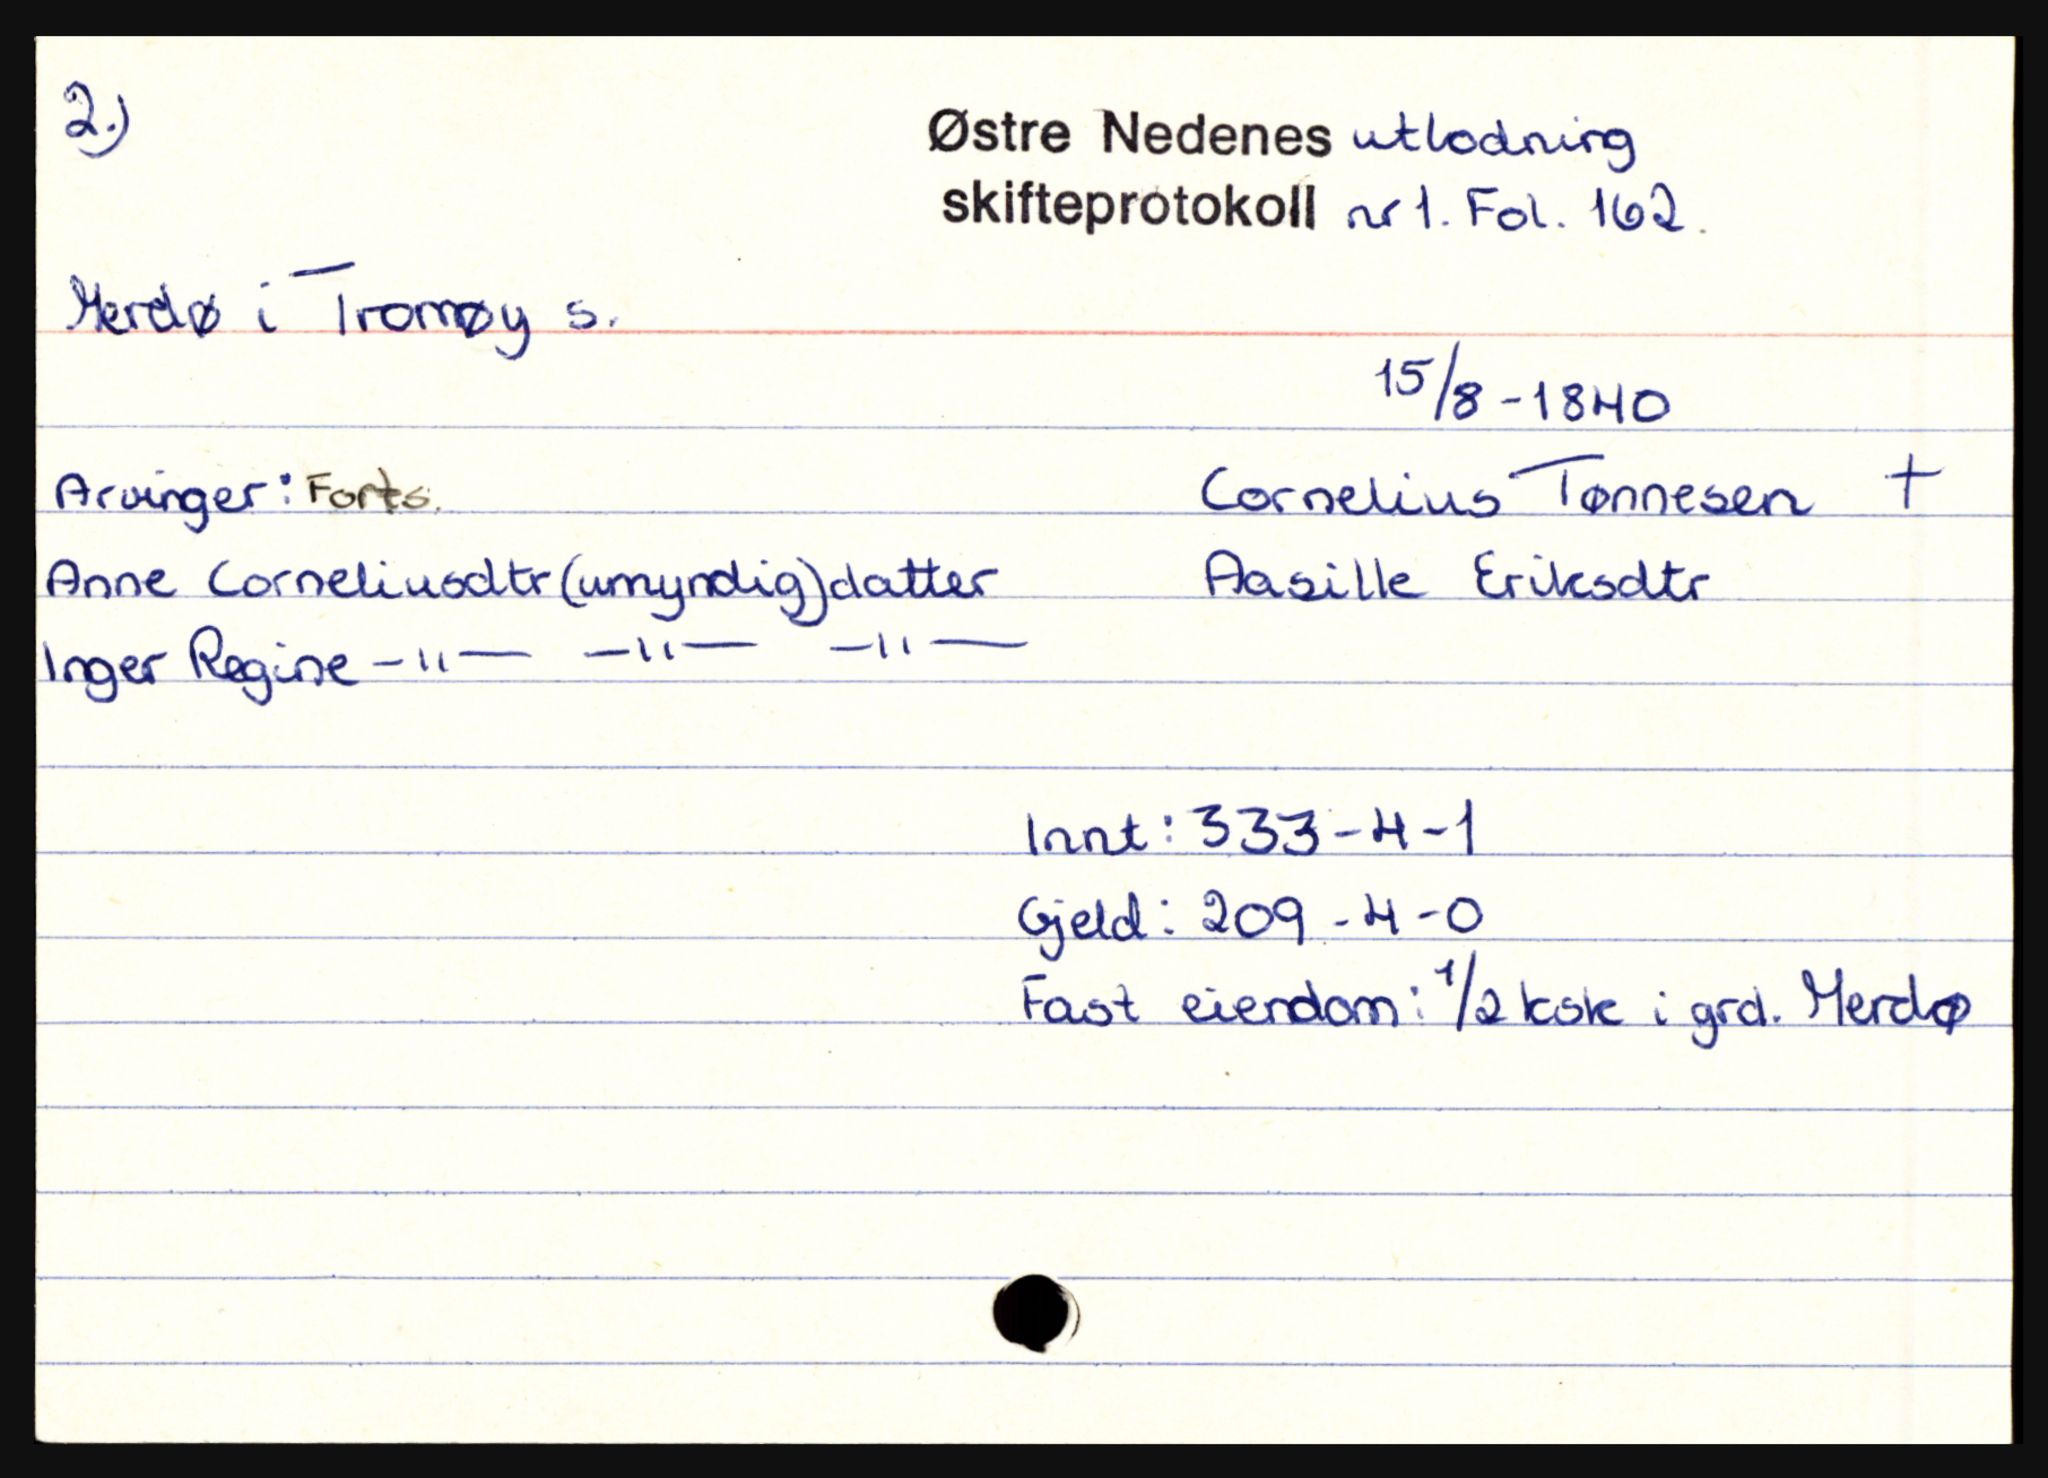 2.)
Østre Nedenes utlodning
skifteprotokoll nr 1. Fol. 162.
Merdø i Tromøy s.
15/8-1840
Arvinger: Forts.
Cornelius Tønnesen †
Anne Corneliusdtr (umyndig) datter
Aasille Eriksdtr
Inger Regine -"- -"- -"-
Innt: 333-4-1
Gjeld: 209-4-0
Fast eiendom: 1/2 ksk i grd. Merdø